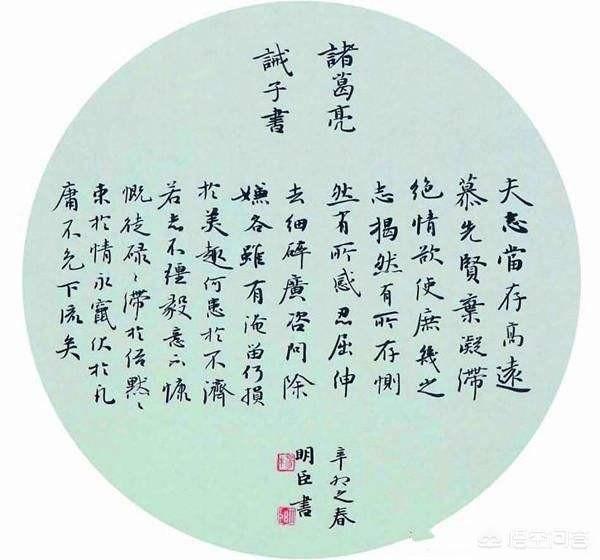 諸葛亮
誡子書
夫志當存高遠
慕先賢棄凝滯
絕情欲使庶幾之
志揭然有所存惻
然有所感忍屈伸
去細碎廣咨問除
嫌各雖有淹留仍損
於美趣何患於不濟
若志不彊毅意不慷
慨徒碌〻滯於俗默〻
束於情永竄伏於凡
庸不免下流矣
辛卯之春
明臣書
悟空问答